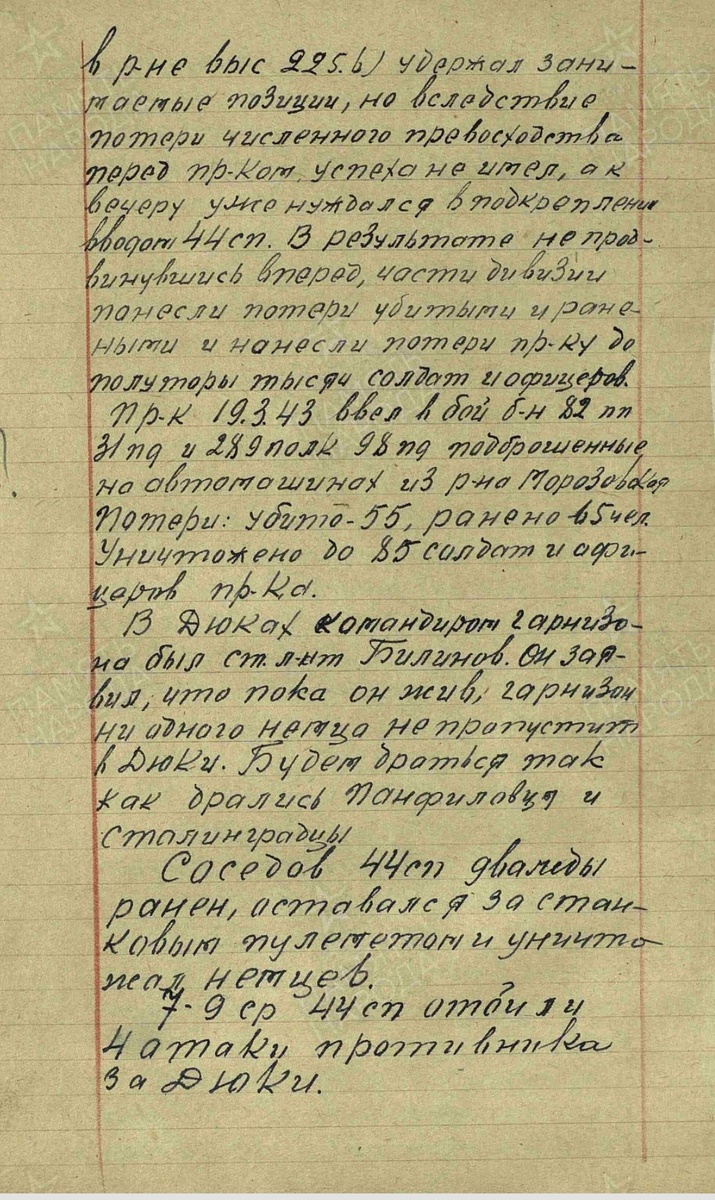 в р-не выс 225.6) удержал зани-
маемые позиции, но вследствие
потери численного превосходства
перед пр-ком, успеха не имел, а к
вечеру уже нуждался в подкреплении
вводом 44 сп. В результате не прод-
винувшись вперед, части дивизии
понесли потери убитыми и ране-
ными и нанесли потери пр-ку до
полуторы тысячи солдат и офицеров.
Пр-к 19.3.43 ввел в бой б-н 82 пп
31 пд и 289 полк 98 пд подброшенные
на автомашинах из р-на Морозовская
Потери: убито-55, ранено 65 чел.
Уничтожено до 85 солдат и офи-
церов пр-ка.
В Дюках командиром гарнизо-
на был ст. л-нт Билинов. Он зая-
вил, что пока он жив, гарнизон
ни одного немца не пропустит
в Дюки. Будем драться так
как дрались Панфиловцы и
сталинградцы
Соседов 44 сп дважды
ранен, оставался за стан-
ковым пулеметом и уничто-
жал немцев.
7-9 ср 44 сп отбили
4 атаки противника
за Дюки.